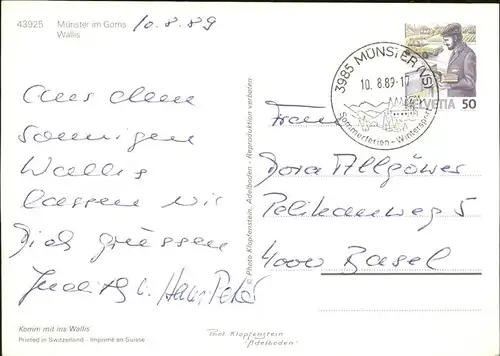 43925 Münster im Goms 10.8.89
Wallis
3985 MÜNSTER (VS)
10. 8.89-17
Sommerferien - Wintersport
HELVETIA 50
Aus dem
sonnigen
Wallis
lassen wir
Dich grüssen
Judith u. Hans Peter
Frau
Dora Allgöwer
Pelikanweg 5
4000 Basel
© Photo Klopfenstein, Adelboden - Reproduktion verboten
Komm mit ins Wallis
Printed in Switzerland - Imprimé en Suisse
Phot Klopfenstein
"Adelboden"